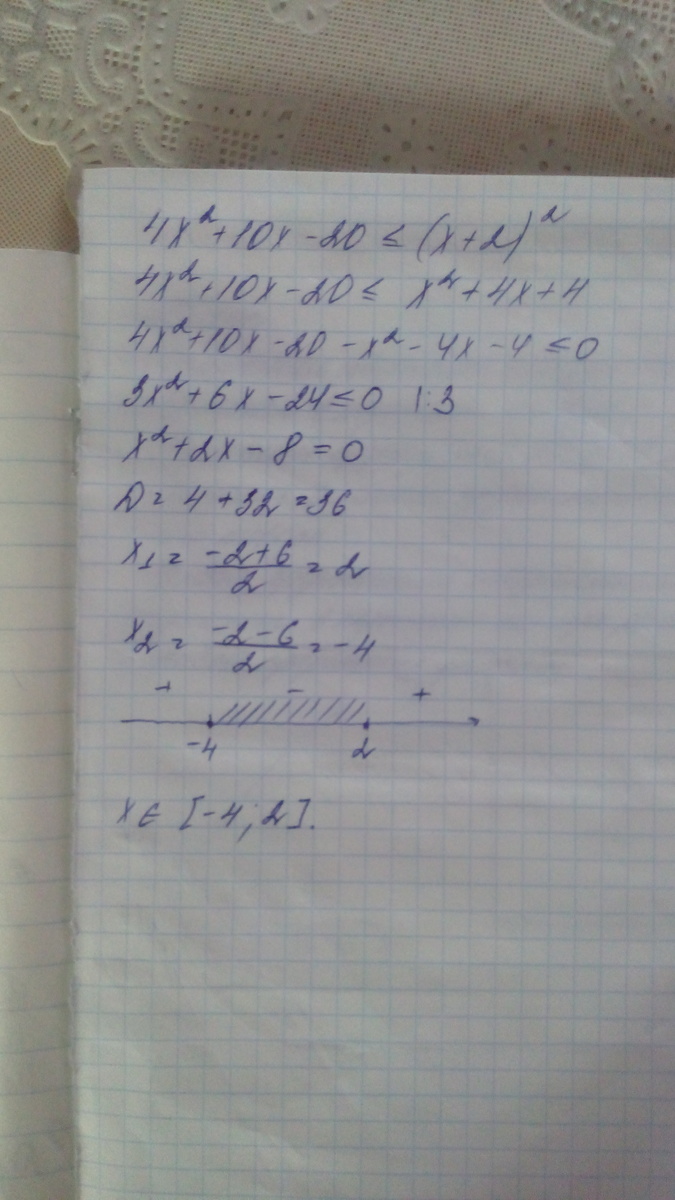 4x²+10x-20 ≤ (x+2)²
4x²+10x-20 ≤ x²+4x+4
4x²+10x-20-x²-4x-4 ≤0
3x²+6x-24≤0 |:3
x²+2x-8=0
D= 4+32=36
x₁= (-2+6)/2 = 2
x₂= (-2-6)/2 = -4
+ - +
-4 2
x∈ [-4;2].